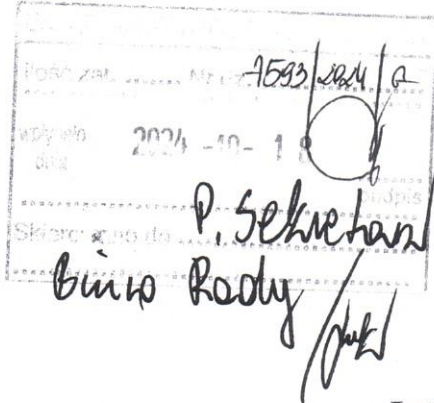 Ilość zał. ........ Nr 7593/2024/
wpłynęło
dnia 2024 -10- 18
podpis
Skierowano do P. Sekretarz
Biuro Rady